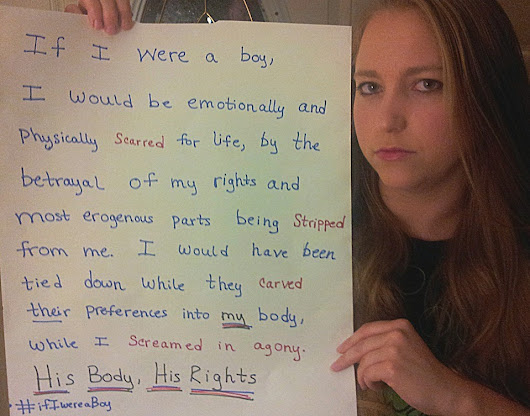 If I were a boy,
I would be emotionally and
physically scarred for life, by the
betrayal of my rights and
most erogenous parts being stripped
from me. I would have been
tied down while they carved
their preferences into my body,
while I screamed in agony.
His Body, His Rights
#ifIwereaBoy